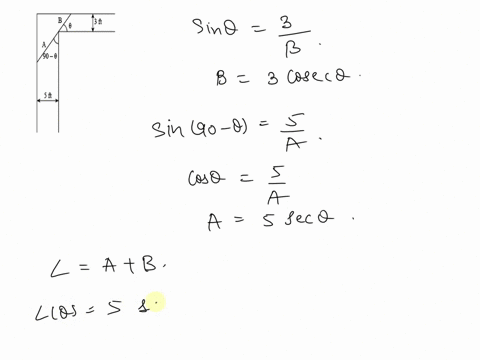 B
θ
3 ft
A
90−θ
5 ft
Sinθ = 3/B.
B = 3 cosecθ
Sin(90−θ) = 5/A.
cosθ = 5/A
A = 5 secθ.
L = A + B.
L(θ) = 5 s